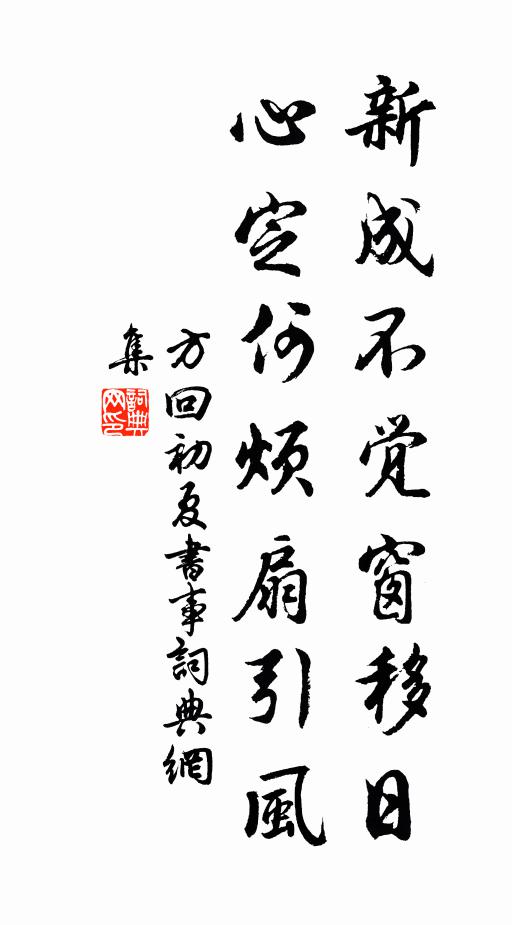 新成不觉窗移日
心定何烦扇引風
方回初夏書事詞典網
集
詞典
网印